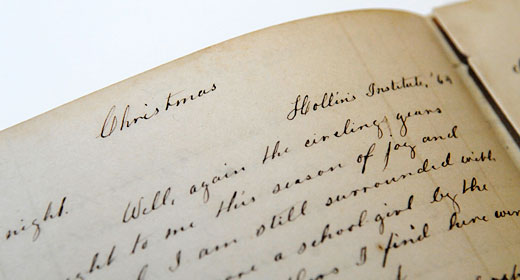 Christmas
Hollins Institute, '69
night. Well, again the circling years
ght to me this season of joy and
I am still surrounded with
ore a school girl by the
I find here were